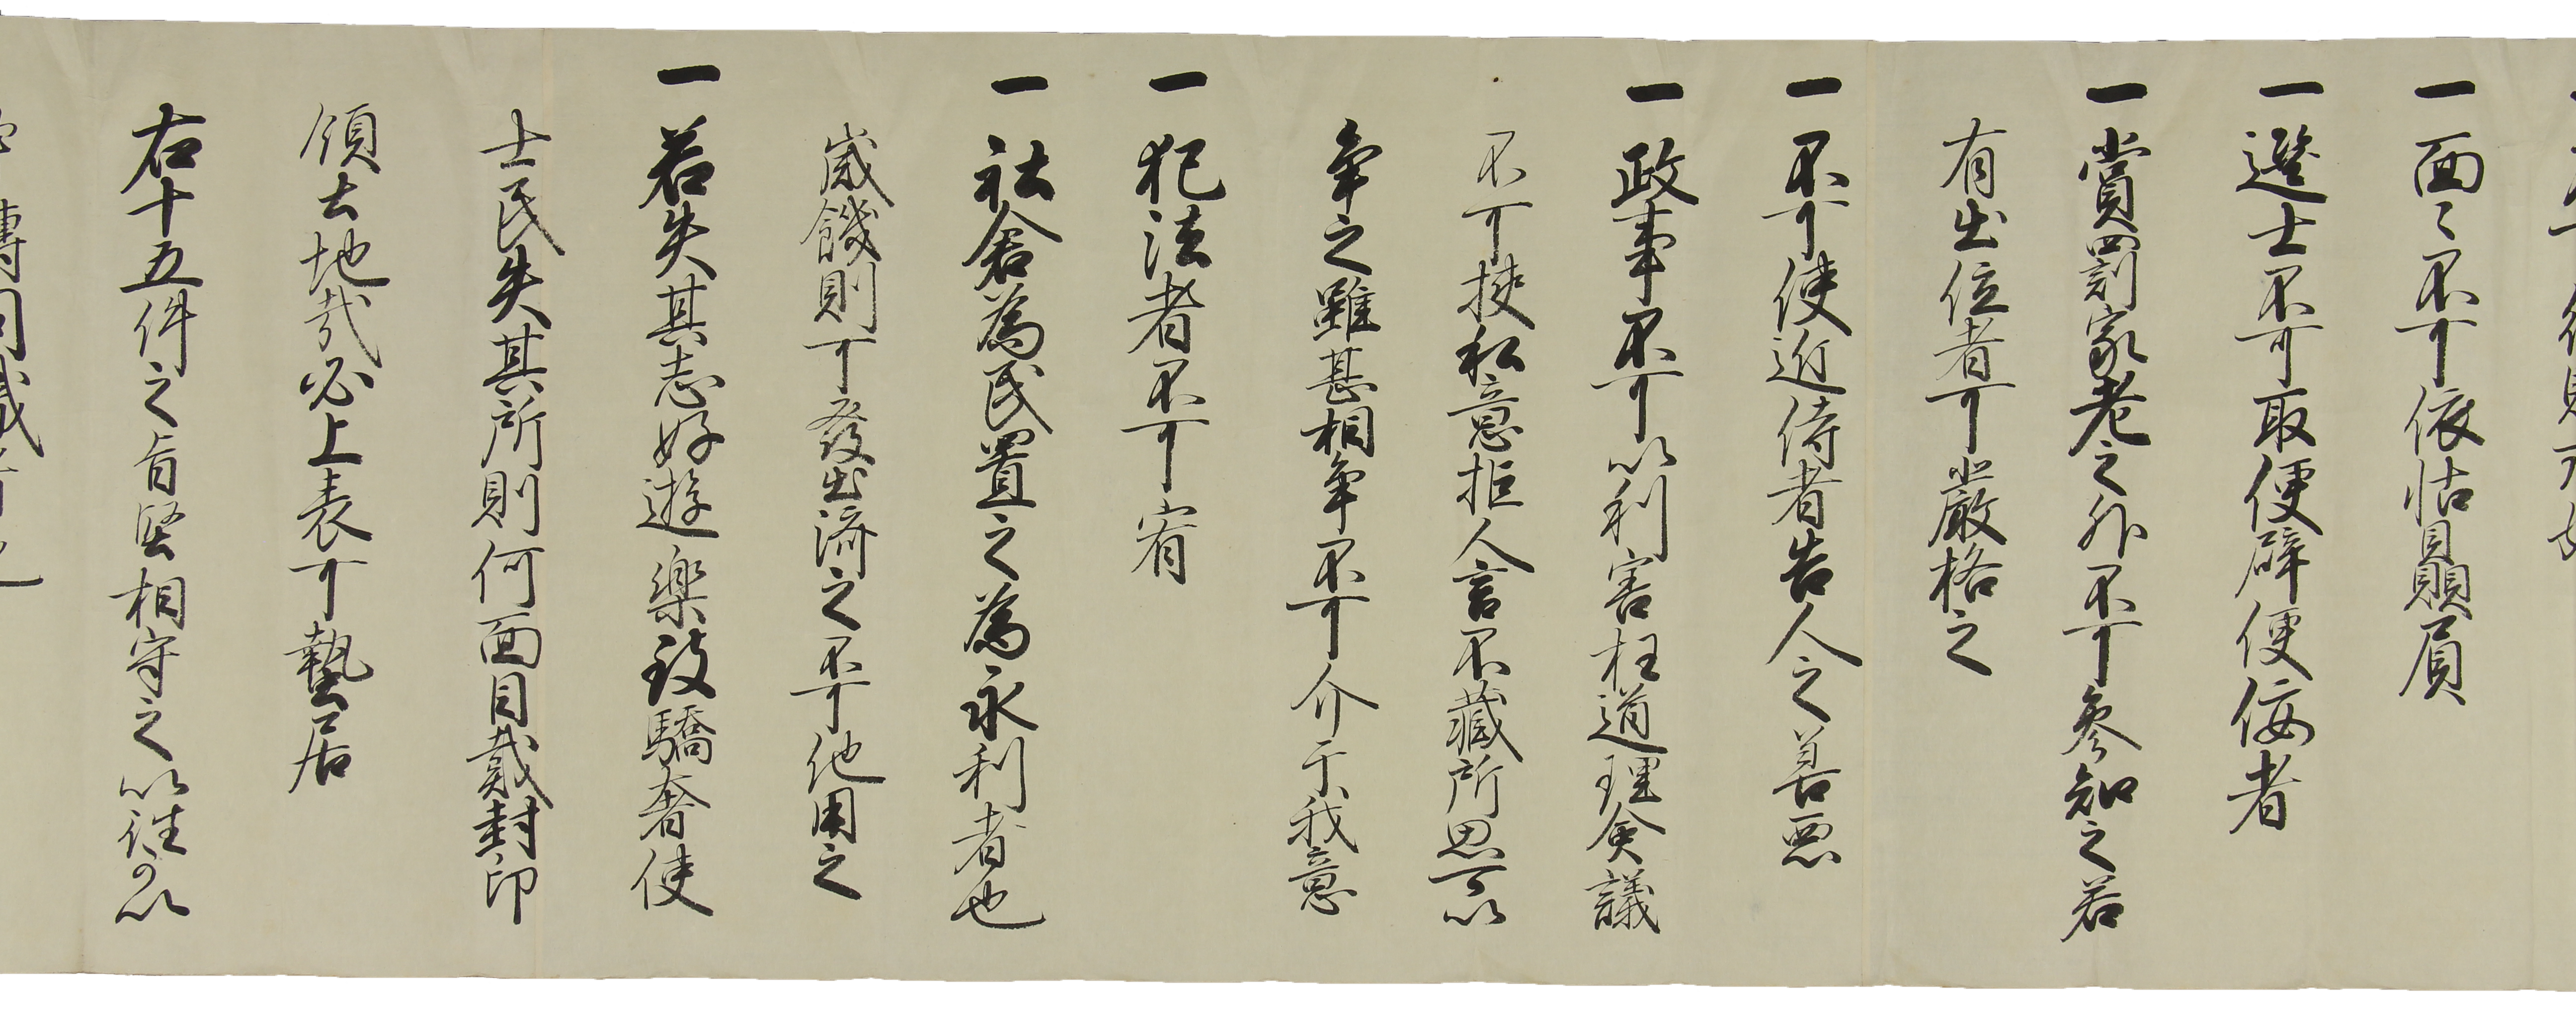 一面々不可依怙贔屓
一選士不可取便辟便佞者
一賞罰家老之外不可参知之若
有出位者可嚴格之
一不可使近侍者告人之善悪
一政事不可以利害枉道理僉議
不可挟私意拒人言不蔵所思可以
争之雖甚相争不可介于我意
一犯法者不可宥
一社倉為民置之為永利者也
歳饑則可發出済之不可他用之
一若失其志好遊樂致驕奢使
士民失其所則何面目戴封印
領土地哉必上表可蟄居
右十五件之旨堅相守之以往可以